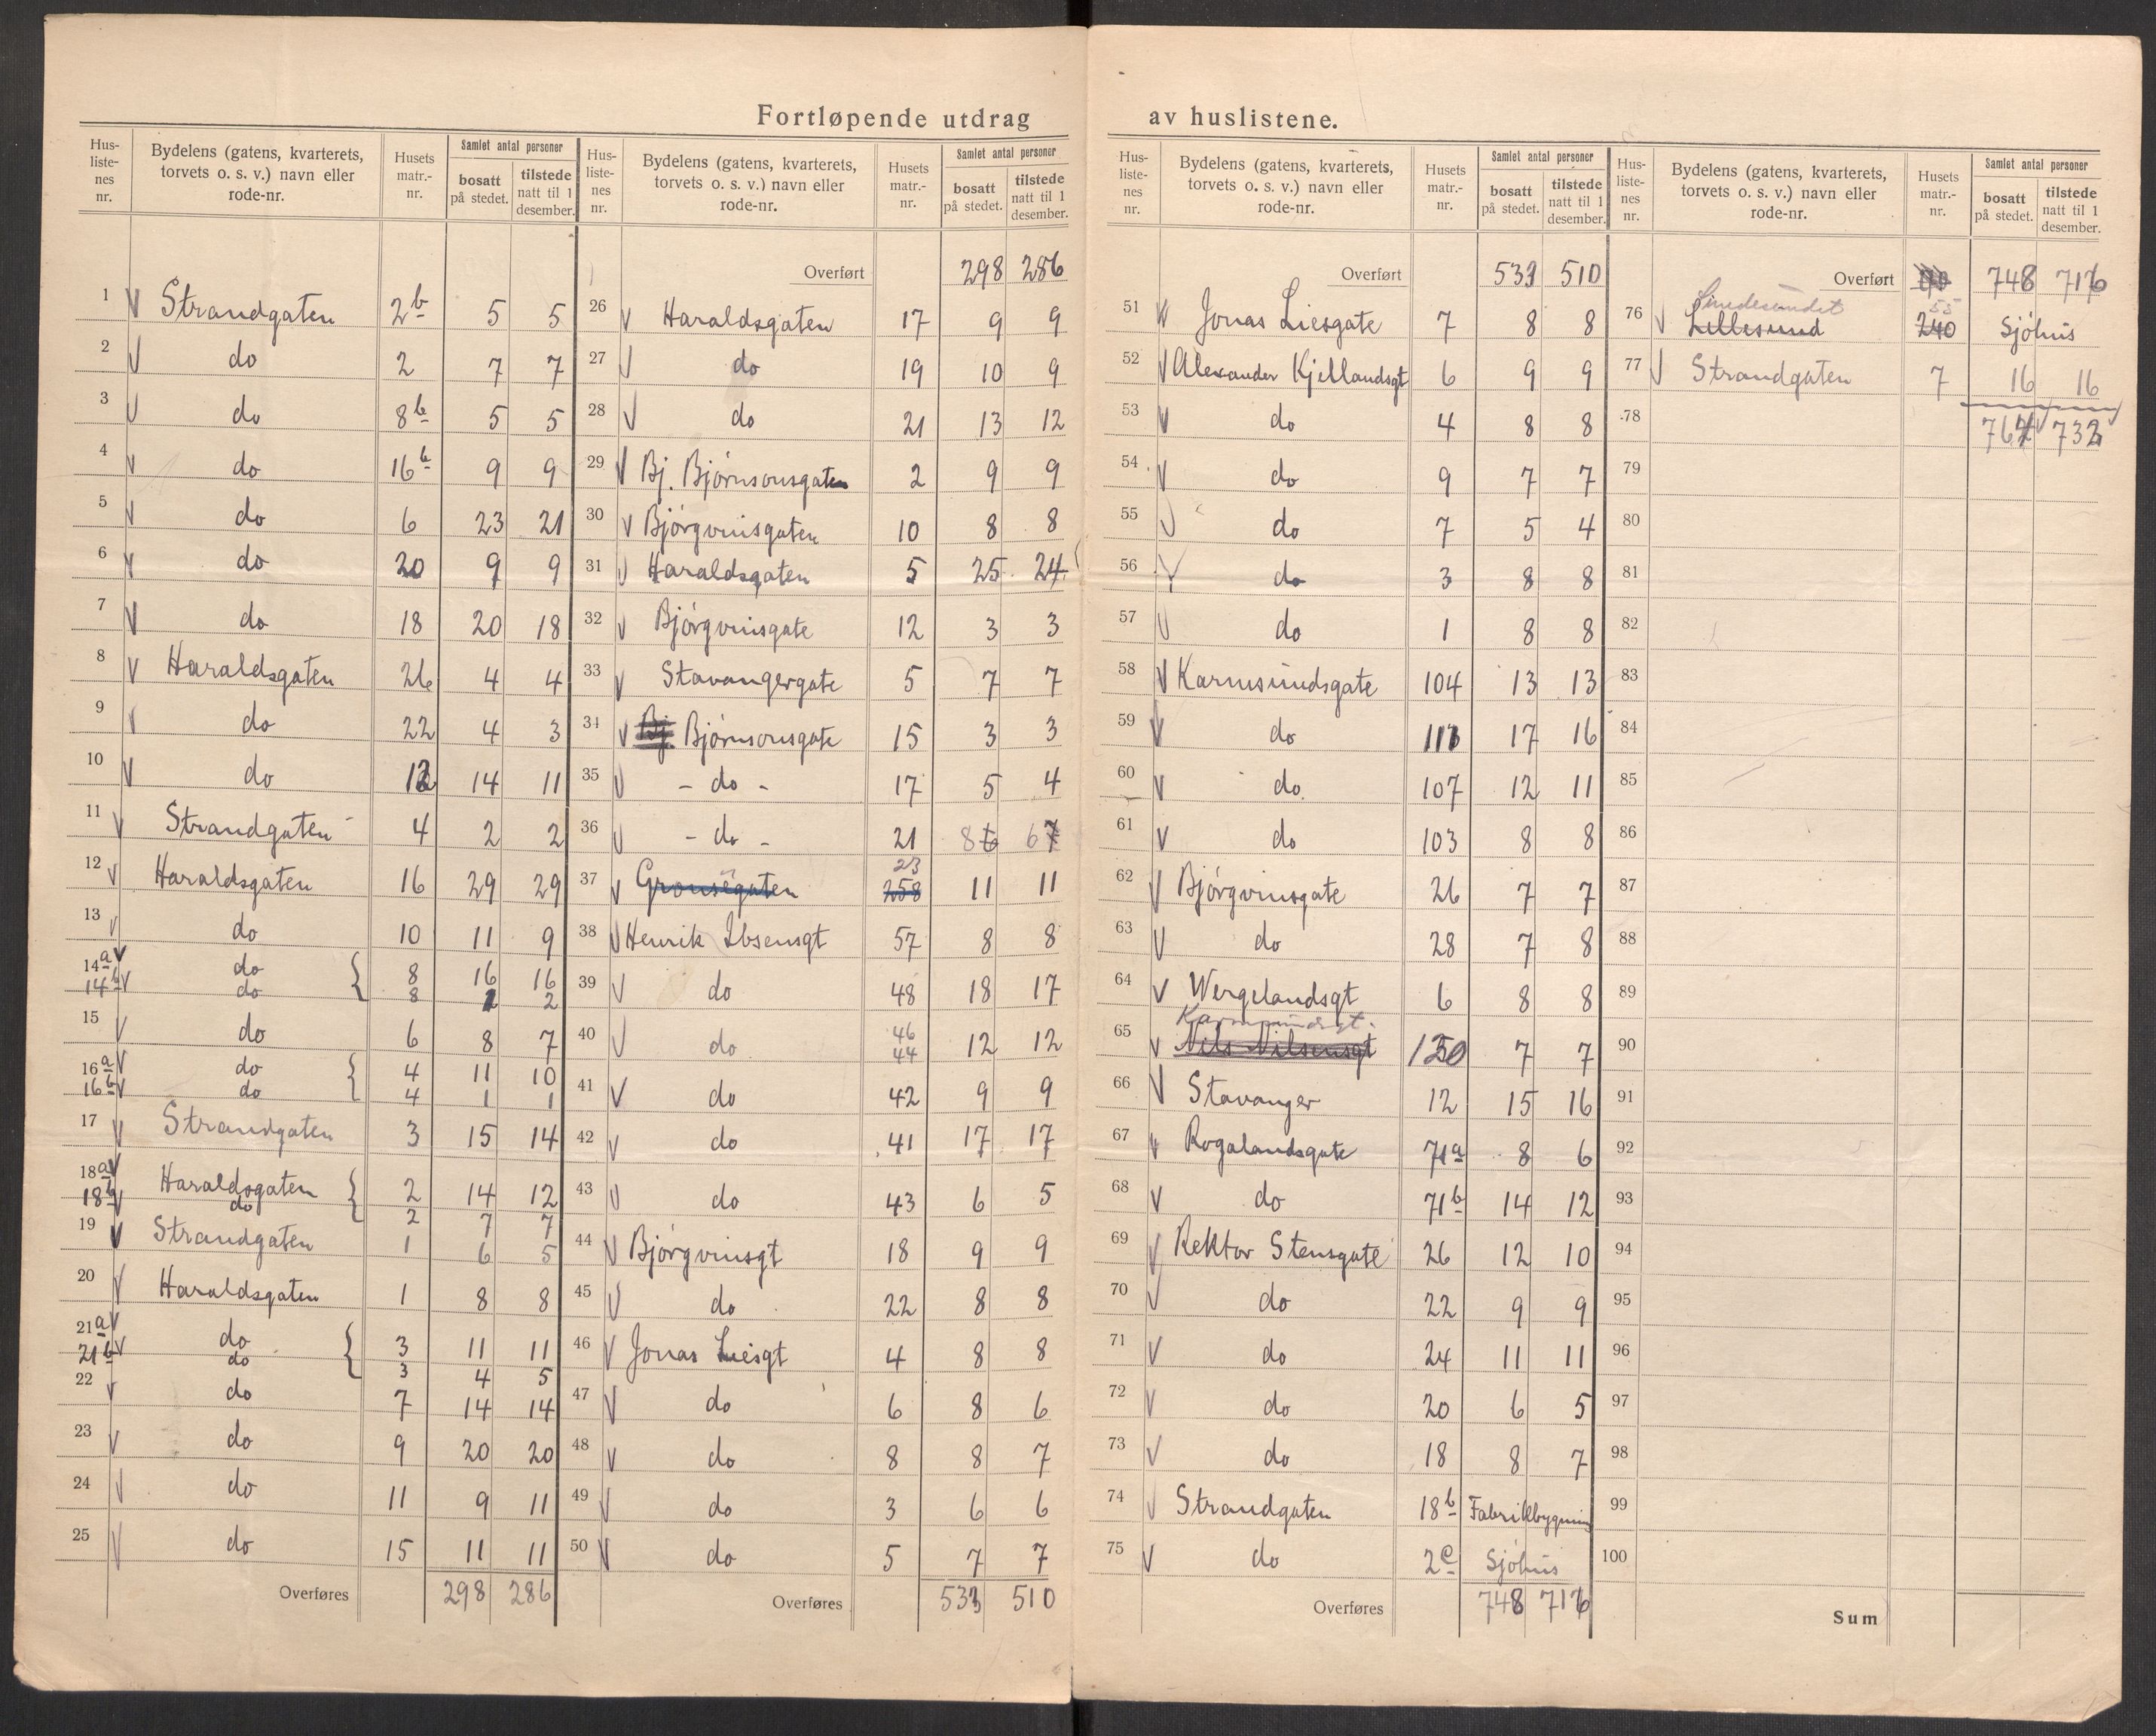 Fortløpende utdrag av huslistene.
Hus-liste-nes nr. | Bydelens (gatens, kvarterets, torvets o. s. v.) navn eller rode-nr. | Husets matr.-nr. | Samlet antal personer bosatt på stedet. | tilstede natt til 1 desember.
1 V Strandgaten 2b 5 5
2 V do 2 7 7
3 V do 8b 5 5
4 V do 16b 9 9
5 V do 6 23 21
6 V do 20 9 9
7 V do 18 20 18
8 V Haraldsgaten 26 4 4
9 V do 22 4 3
10 V do 12 14 11
11 V Strandgaten 4 2 2
12 V Haraldsgaten 16 29 29
13 V do 10 11 9
14a V do 8 16 16
14b V do 8 2
15 V do 6 8 7
16a V do 4 11 10
16b V do 4 1 1
17 V Strandgaten 3 15 14
18a V Haraldsgaten 2 14 12
18b V do 2 7 7
19 V Strandgaten 1 6 5
20 V Haraldsgaten 1 8 8
21a V do 3 11 11
21b V do 3 4 5
22 V do 7 14 14
23 V do 9 20 20
24 V do 11 9 11
25 V do 15 11 11
Overføres 298 286
Hus-liste-nes nr. | Bydelens (gatens, kvarterets, torvets o. s. v.) navn eller rode-nr. | Husets matr.-nr. | Samlet antal personer bosatt på stedet. | tilstede natt til 1 desember.
Overført 298 286
26 V Haraldsgaten 17 9 9
27 V do 19 10 9
28 V do 21 13 12
29 V Bj. Bjørnsonsgaten 2 9 9
30 V Bjørgvinsgaten 10 8 8
31 V Haraldsgaten 5 25 24
32 V Bjørgvinsgate 12 3 3
33 V Stavangergate 5 7 7
34 V Bj. Bjørnsonsgate 15 3 3
35 V - do - 17 5 4
36 V - do - 21 8 6 6 7
37 V Gronsegaten 23 258 11 11
38 V Henrik Ibsensgt 57 8 8
39 V do 48 18 17
40 V do 46 44 12 12
41 V do 42 9 9
42 V do 41 17 17
43 V do 43 6 5
44 V Bjørgvinsgt 18 9 9
45 V do 22 8 8
46 V Jonas Liesgt 4 8 8
47 V do 6 8 6
48 V do 8 8 7
49 V do 3 6 6
50 V do 5 7 7
Overføres 533 510
Hus-liste-nes nr. | Bydelens (gatens, kvarterets, torvets o. s. v.) navn eller rode-nr. | Husets matr.-nr. | Samlet antal personer bosatt på stedet. | tilstede natt til 1 desember.
Overført 533 510
51 V Jonas Liesgate 7 8 8
52 V Alexander Kjellandsgt 6 9 9
53 V do 4 8 8
54 V do 9 7 7
55 V do 7 5 4
56 V do 3 8 8
57 V do 1 8 8
58 V Karmsundsgate 104 13 13
59 V do 17 16
60 V do 107 12 11
61 V do 103 8 8
62 V Bjørgvinsgate 26 7 7
63 V do 28 7 8
64 V Wergelandsgt 6 8 8
Karmsundsgt.
65 V Nils Nilsensgt 130 7 7
66 V Stavanger 12 15 16
67 V Rogalandsgate 71a 8 6
68 V do 71b 14 12
69 V Rektor Stensgate 26 12 10
70 V do 22 9 9
71 V do 24 11 11
72 V do 20 6 5
73 V do 18 8 7
74 V Strandgaten 18b Fabrikbygning
75 V do 2c Sjöhus
Overføres 748 716
Hus-liste-nes nr. | Bydelens (gatens, kvarterets, torvets o. s. v.) navn eller rode-nr. | Husets matr.-nr. | Samlet antal personer bosatt på stedet. | tilstede natt til 1 desember.
Overført 748 716
55
76 V Lillesund 240 Sjöhus
77 V Strandgaten 7 16 16
78 764 732
79
80
81
82
83
84
85
86
87
88
89
90
91
92
93
94
95
96
97
98
99
100
Sum